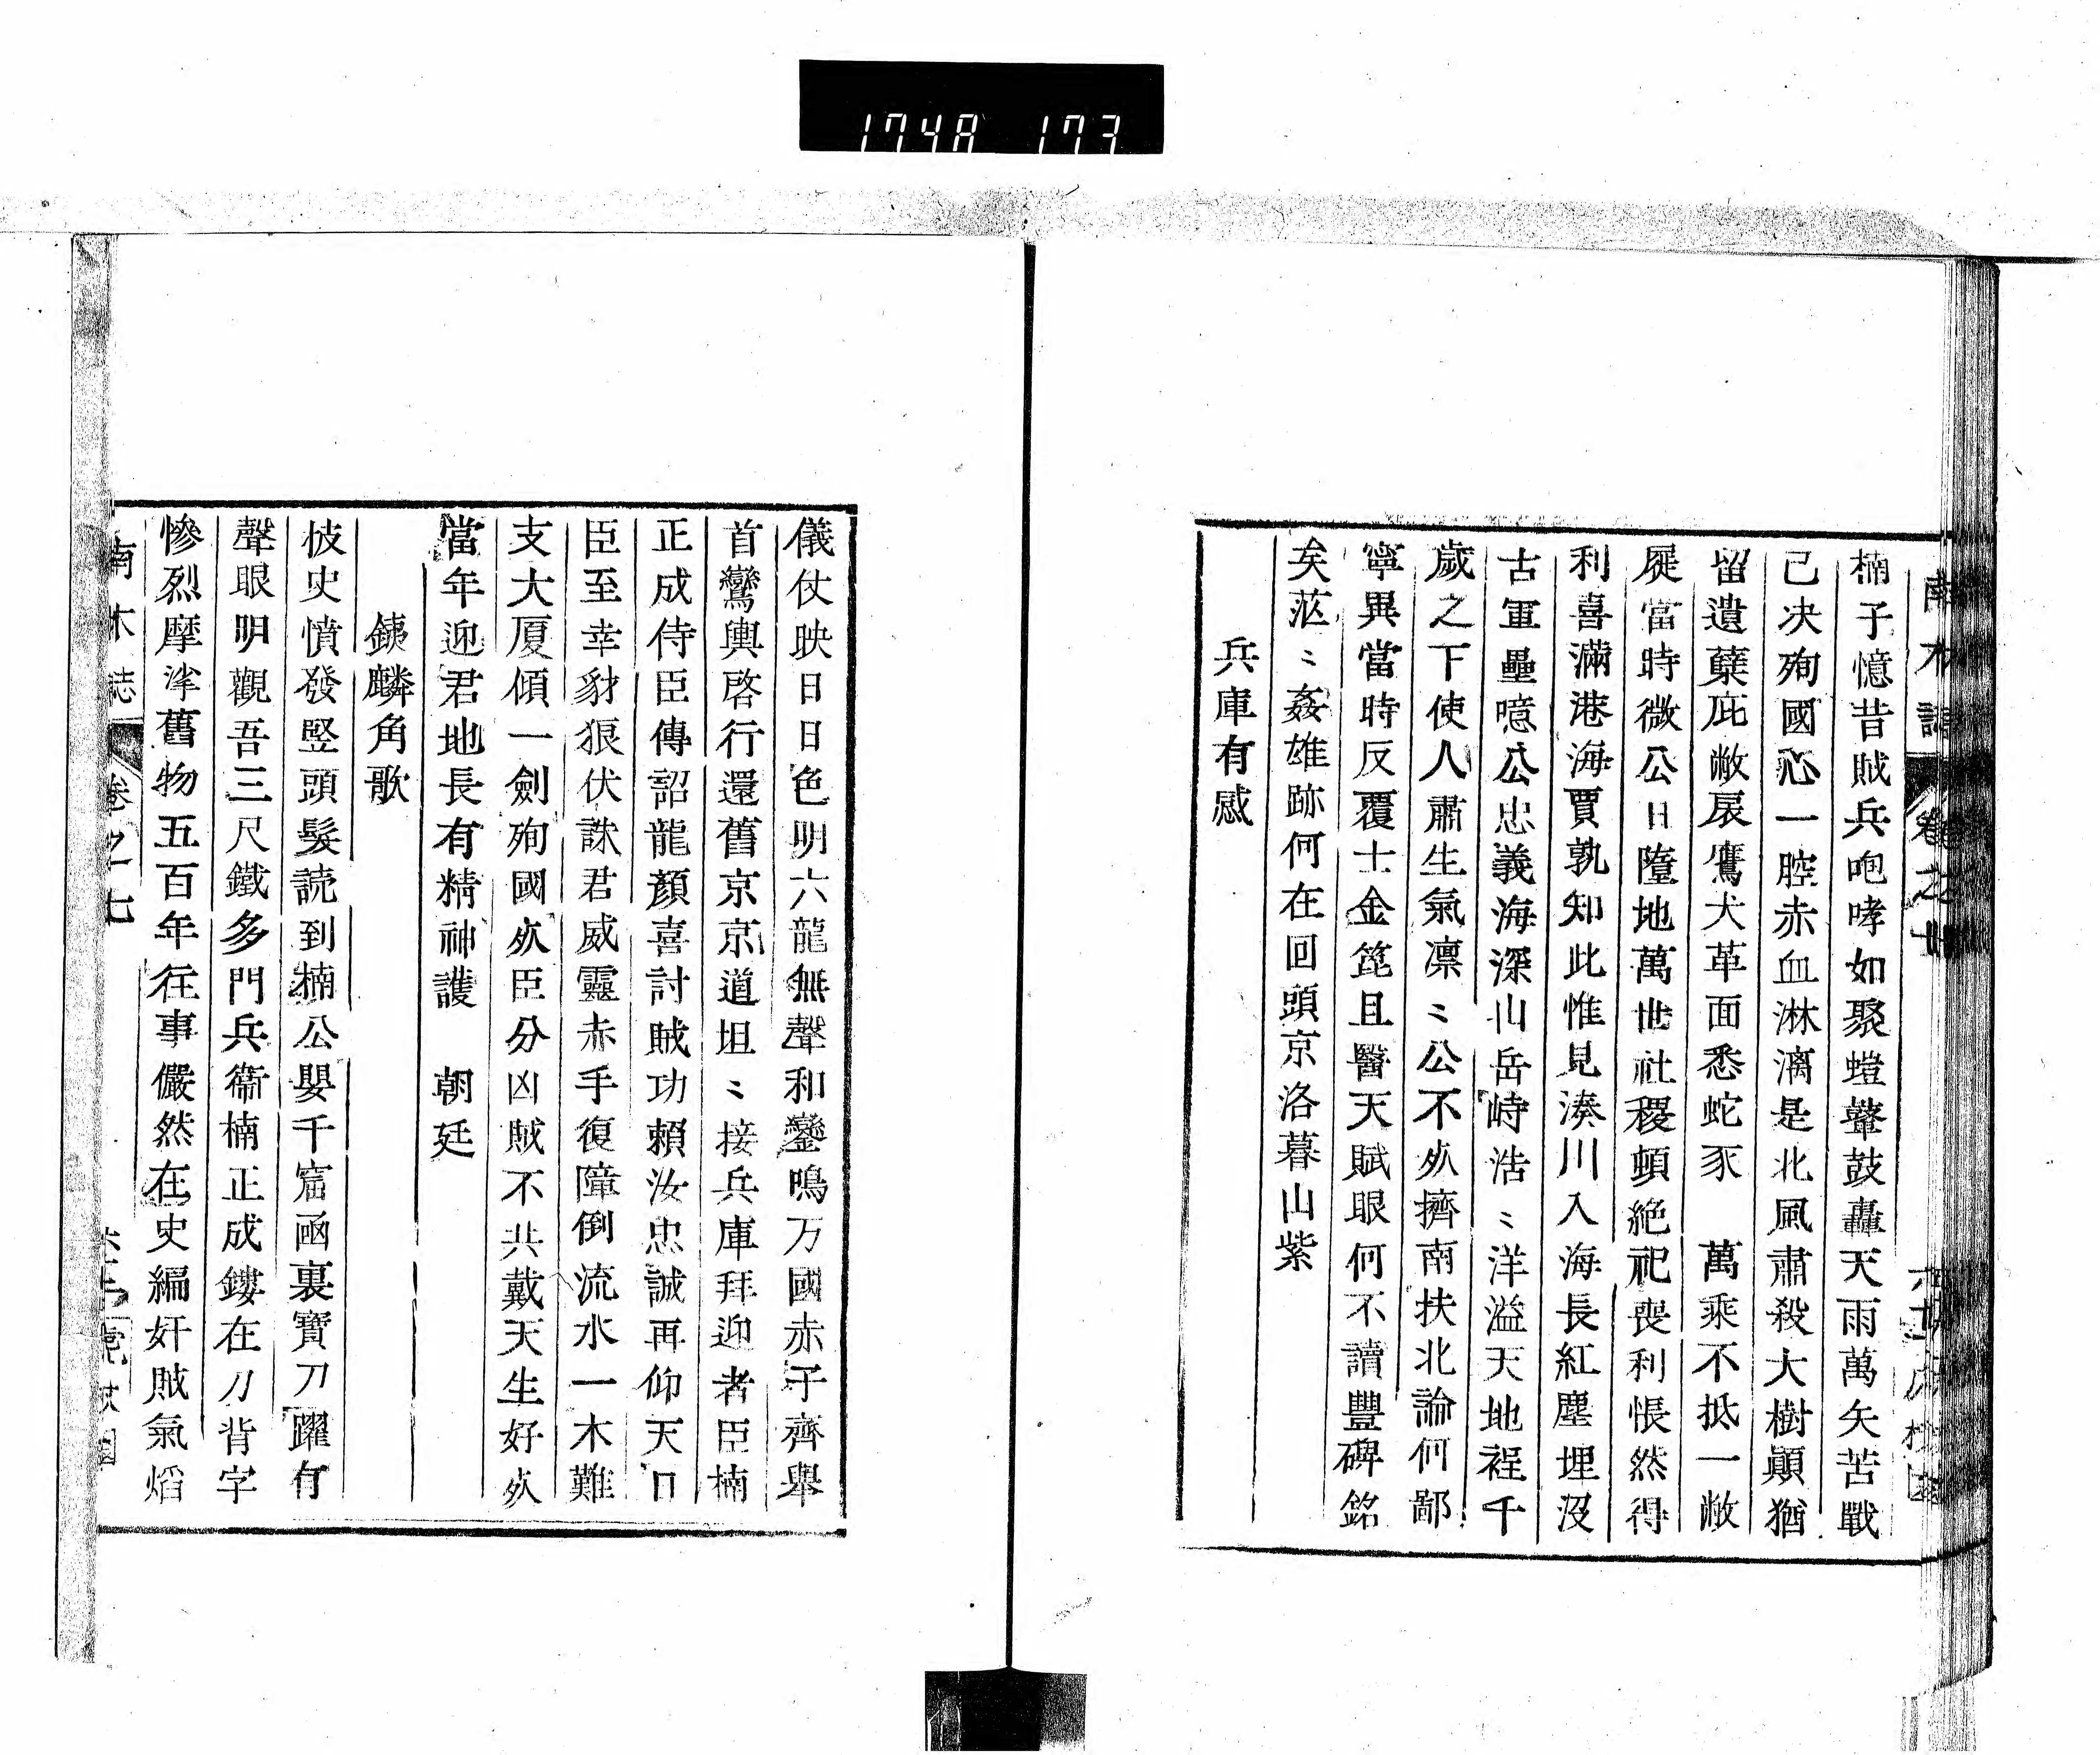 1748 173
楠子憶昔賊兵咆哮如聚螘鼙鼓轟天雨萬矢苦戰
己决殉國心一腔赤血淋漓是北風肅殺大樹顚猶
留遺蘖庇敝𡱈鷹犬革面悉蛇豕　萬乘不抵一敝
屣當時微公日墮地萬世社稷頓絶祀喪利悵然得
利喜滿港海賈孰知此惟見湊川入海長紅塵埋沒
古軍壘噫公忠義海深山岳峙浩〻洋溢天地裎千
歲之下使人肅生氣凛〻公不㱥擠南扶北論何鄙
寧異當時反覆士金箆且醫天賦眼何不讀豐碑銘
矣茫〻姦雄跡何在回頭京洛暮山紫
兵庫有感
儀仗映日日色明六龍無聲和鑾鳴万國赤子齊舉
首鸞輿啓行還舊京京道坦〻接兵庫拜迎者臣楠
正成侍臣傳詔龍顏喜討賊功賴汝忠誠再仰天日
臣至幸豺狼伏誅君威靈赤手復障倒流水一木難
支大厦傾一劍殉國㱥臣分凶賊不共戴天生好㱥
當年迎君地長有精神護　朝廷
銕麟角歌
披史憤發竪頭髮読到楠公嬰千窟凾裏寶刀躍有
聲眼明觀吾三尺鐵多門兵衞楠正成鏤在刀背字
慘烈摩挲舊物五百年往事儼然在史編奸賊氣焰
南木誌　卷之七